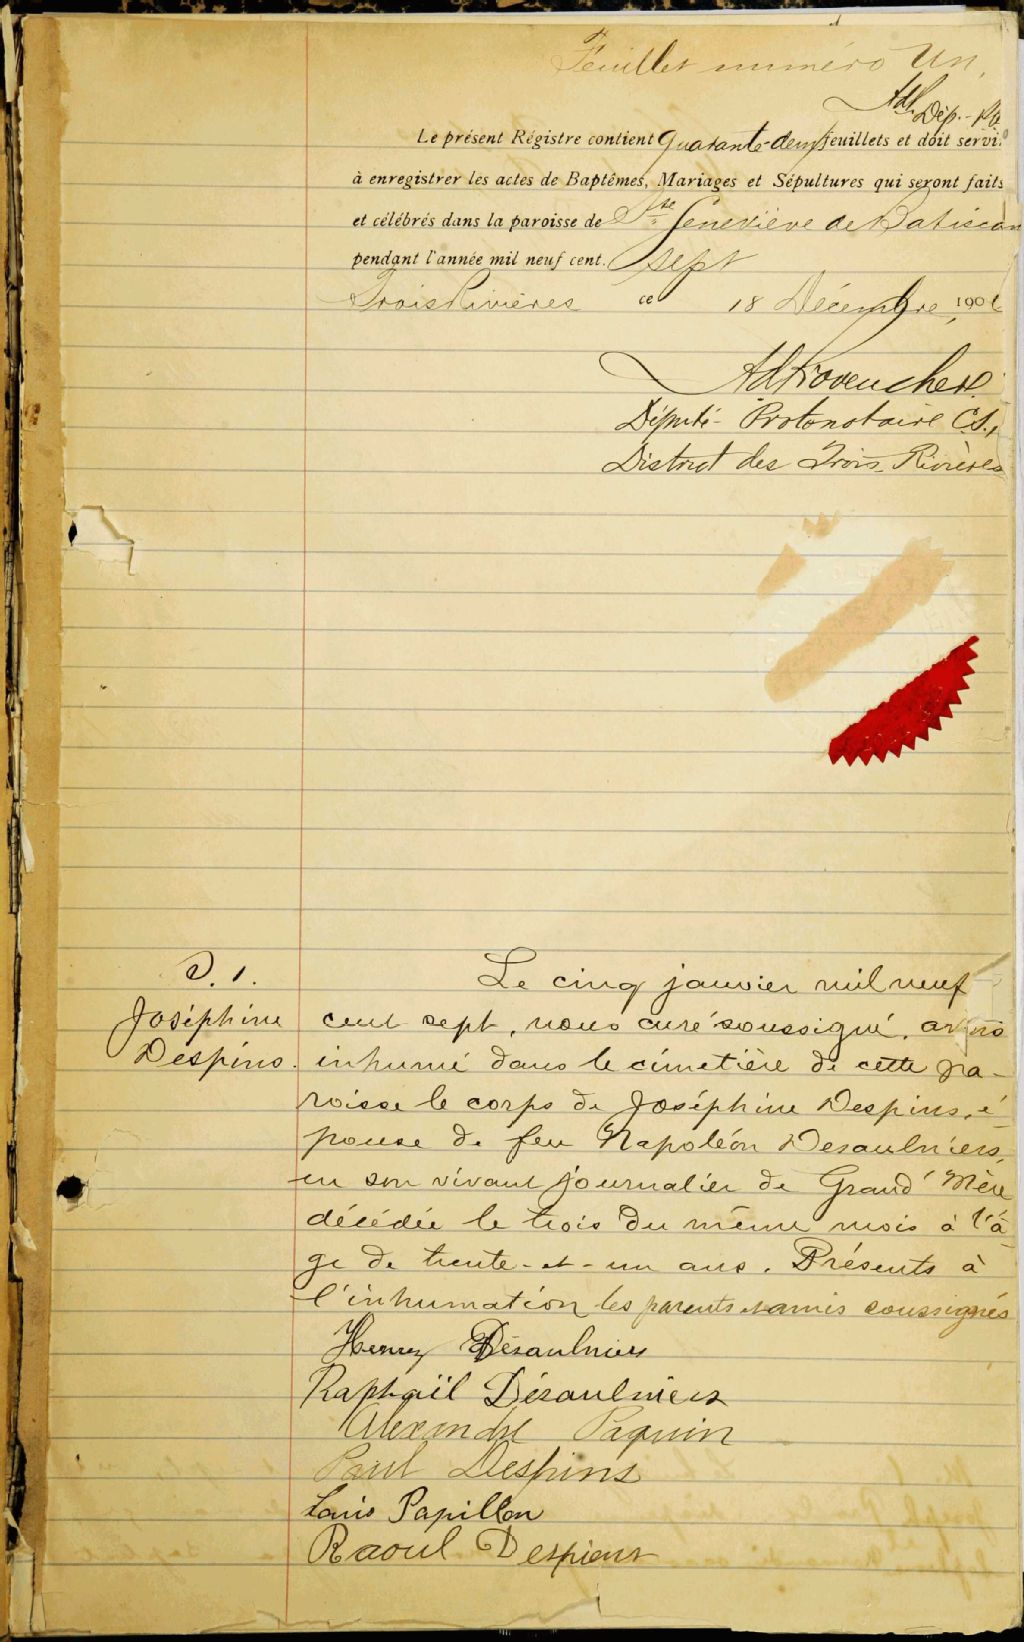 Feuillet numéro Un.
Dép. -
Le présent Régistre contient Quarante-deux feuillets et doit servir
à enregistrer les actes de Baptêmes, Mariages et Sépultures qui seront faits
et célébrés dans la paroisse de Ste Geneviève de Batiscan
pendant l'année mil neuf cent. sept
Trois Rivières ce 18 Décembre, 190
AdProvencher
Député-Protonotaire C.S.,
District des Trois-Rivières
S. 1.
Joséphine
Despins.
Le cinq janvier mil neuf
cent sept, nous curé soussigné, avons
inhumé dans le cimetière de cette pa-
roisse le corps de Joséphine Despins, é-
pouse de feu Napoléon Desaulniers,
en son vivant journalier de Grand'Mère
décédée le trois du même mois à l'â-
ge de trente-et-un ans. Présents à
l'inhumation les parents et amis soussignés
Henry Désaulniers
Raphaël Désaulniers
Alexandre Paquin
Paul Despins
Louis Papillon
Raoul Despins